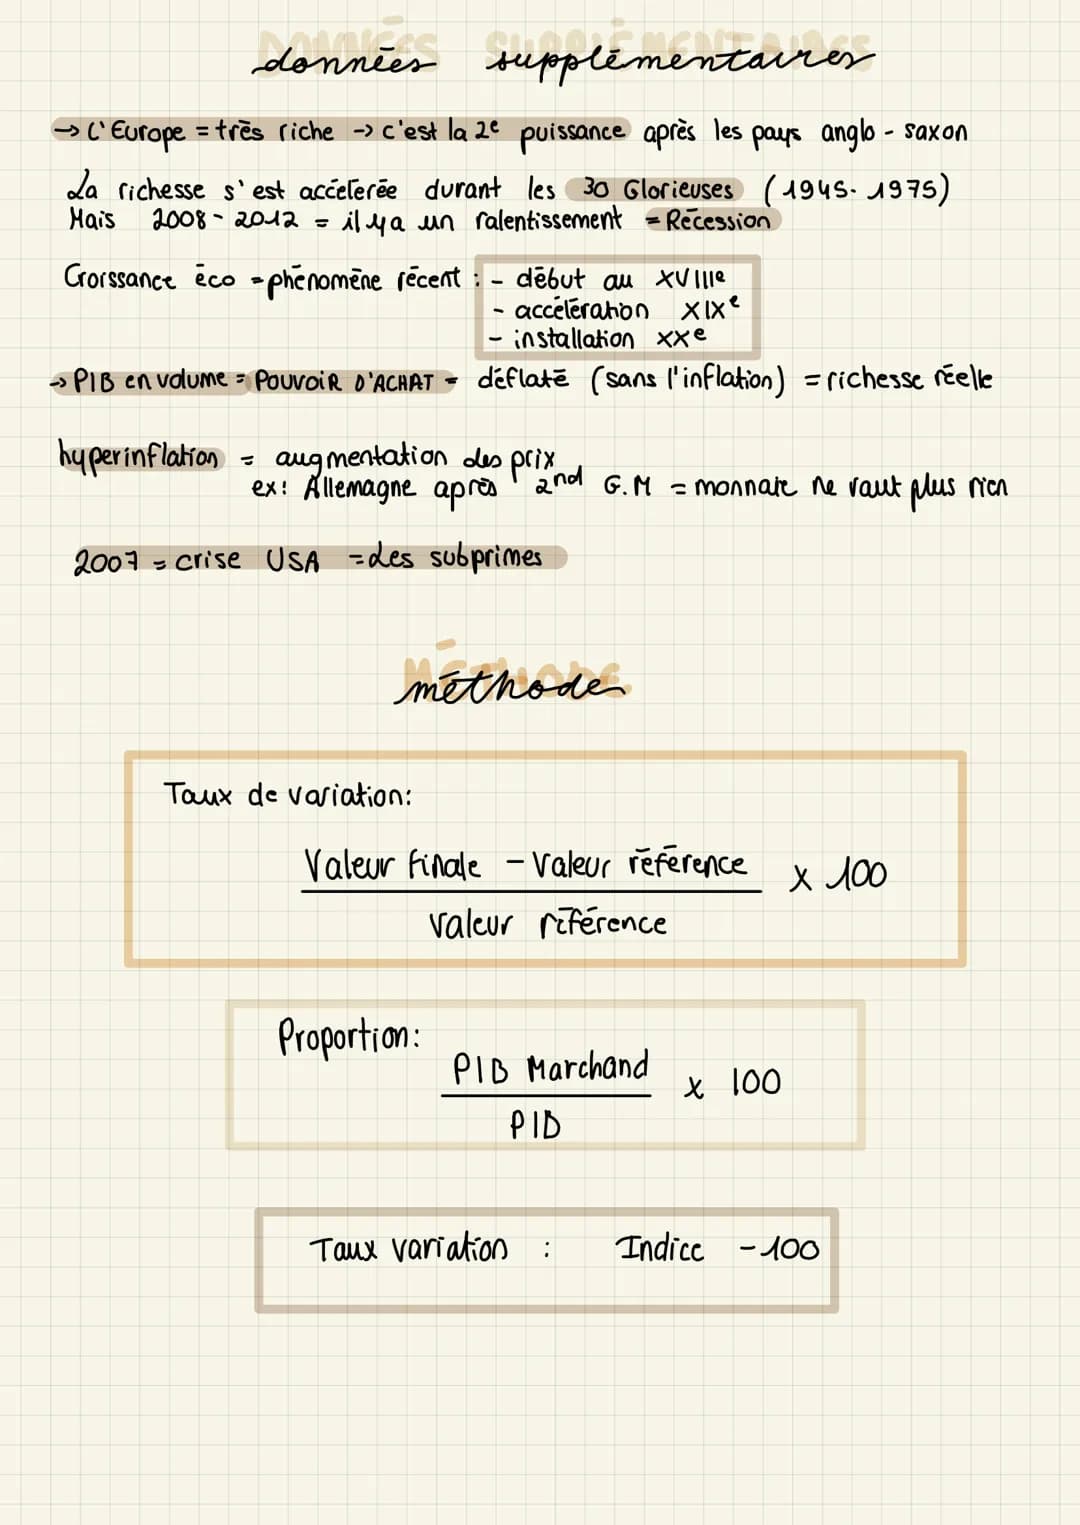 données supplémentaires
→ L'Europe = très riche → c'est la 2e puissance après les pays anglo-saxon
La richesse s'est accélerée durant les 30 Glorieuses (1945-1975)
Mais 2008-2012 = il y a un ralentissement = Récession
Croissance éco = phénomène récent : - début au XVIIIe
- accélération XIXe
- installation XXe
→ PIB en volume = POUVOIR D'ACHAT = déflaté (sans l'inflation) = richesse réelle
hyperinflation = augmentation des prix
ex: Allemagne après 2nd G.M = monnaie ne vaut plus rien
2007 = crise USA = des subprimes
méthode
Taux de variation:
Valeur finale - Valeur référence
x 100
Valeur référence
Proportion:
PIB Marchand
x 100
PIB
Taux variation : Indice - 100